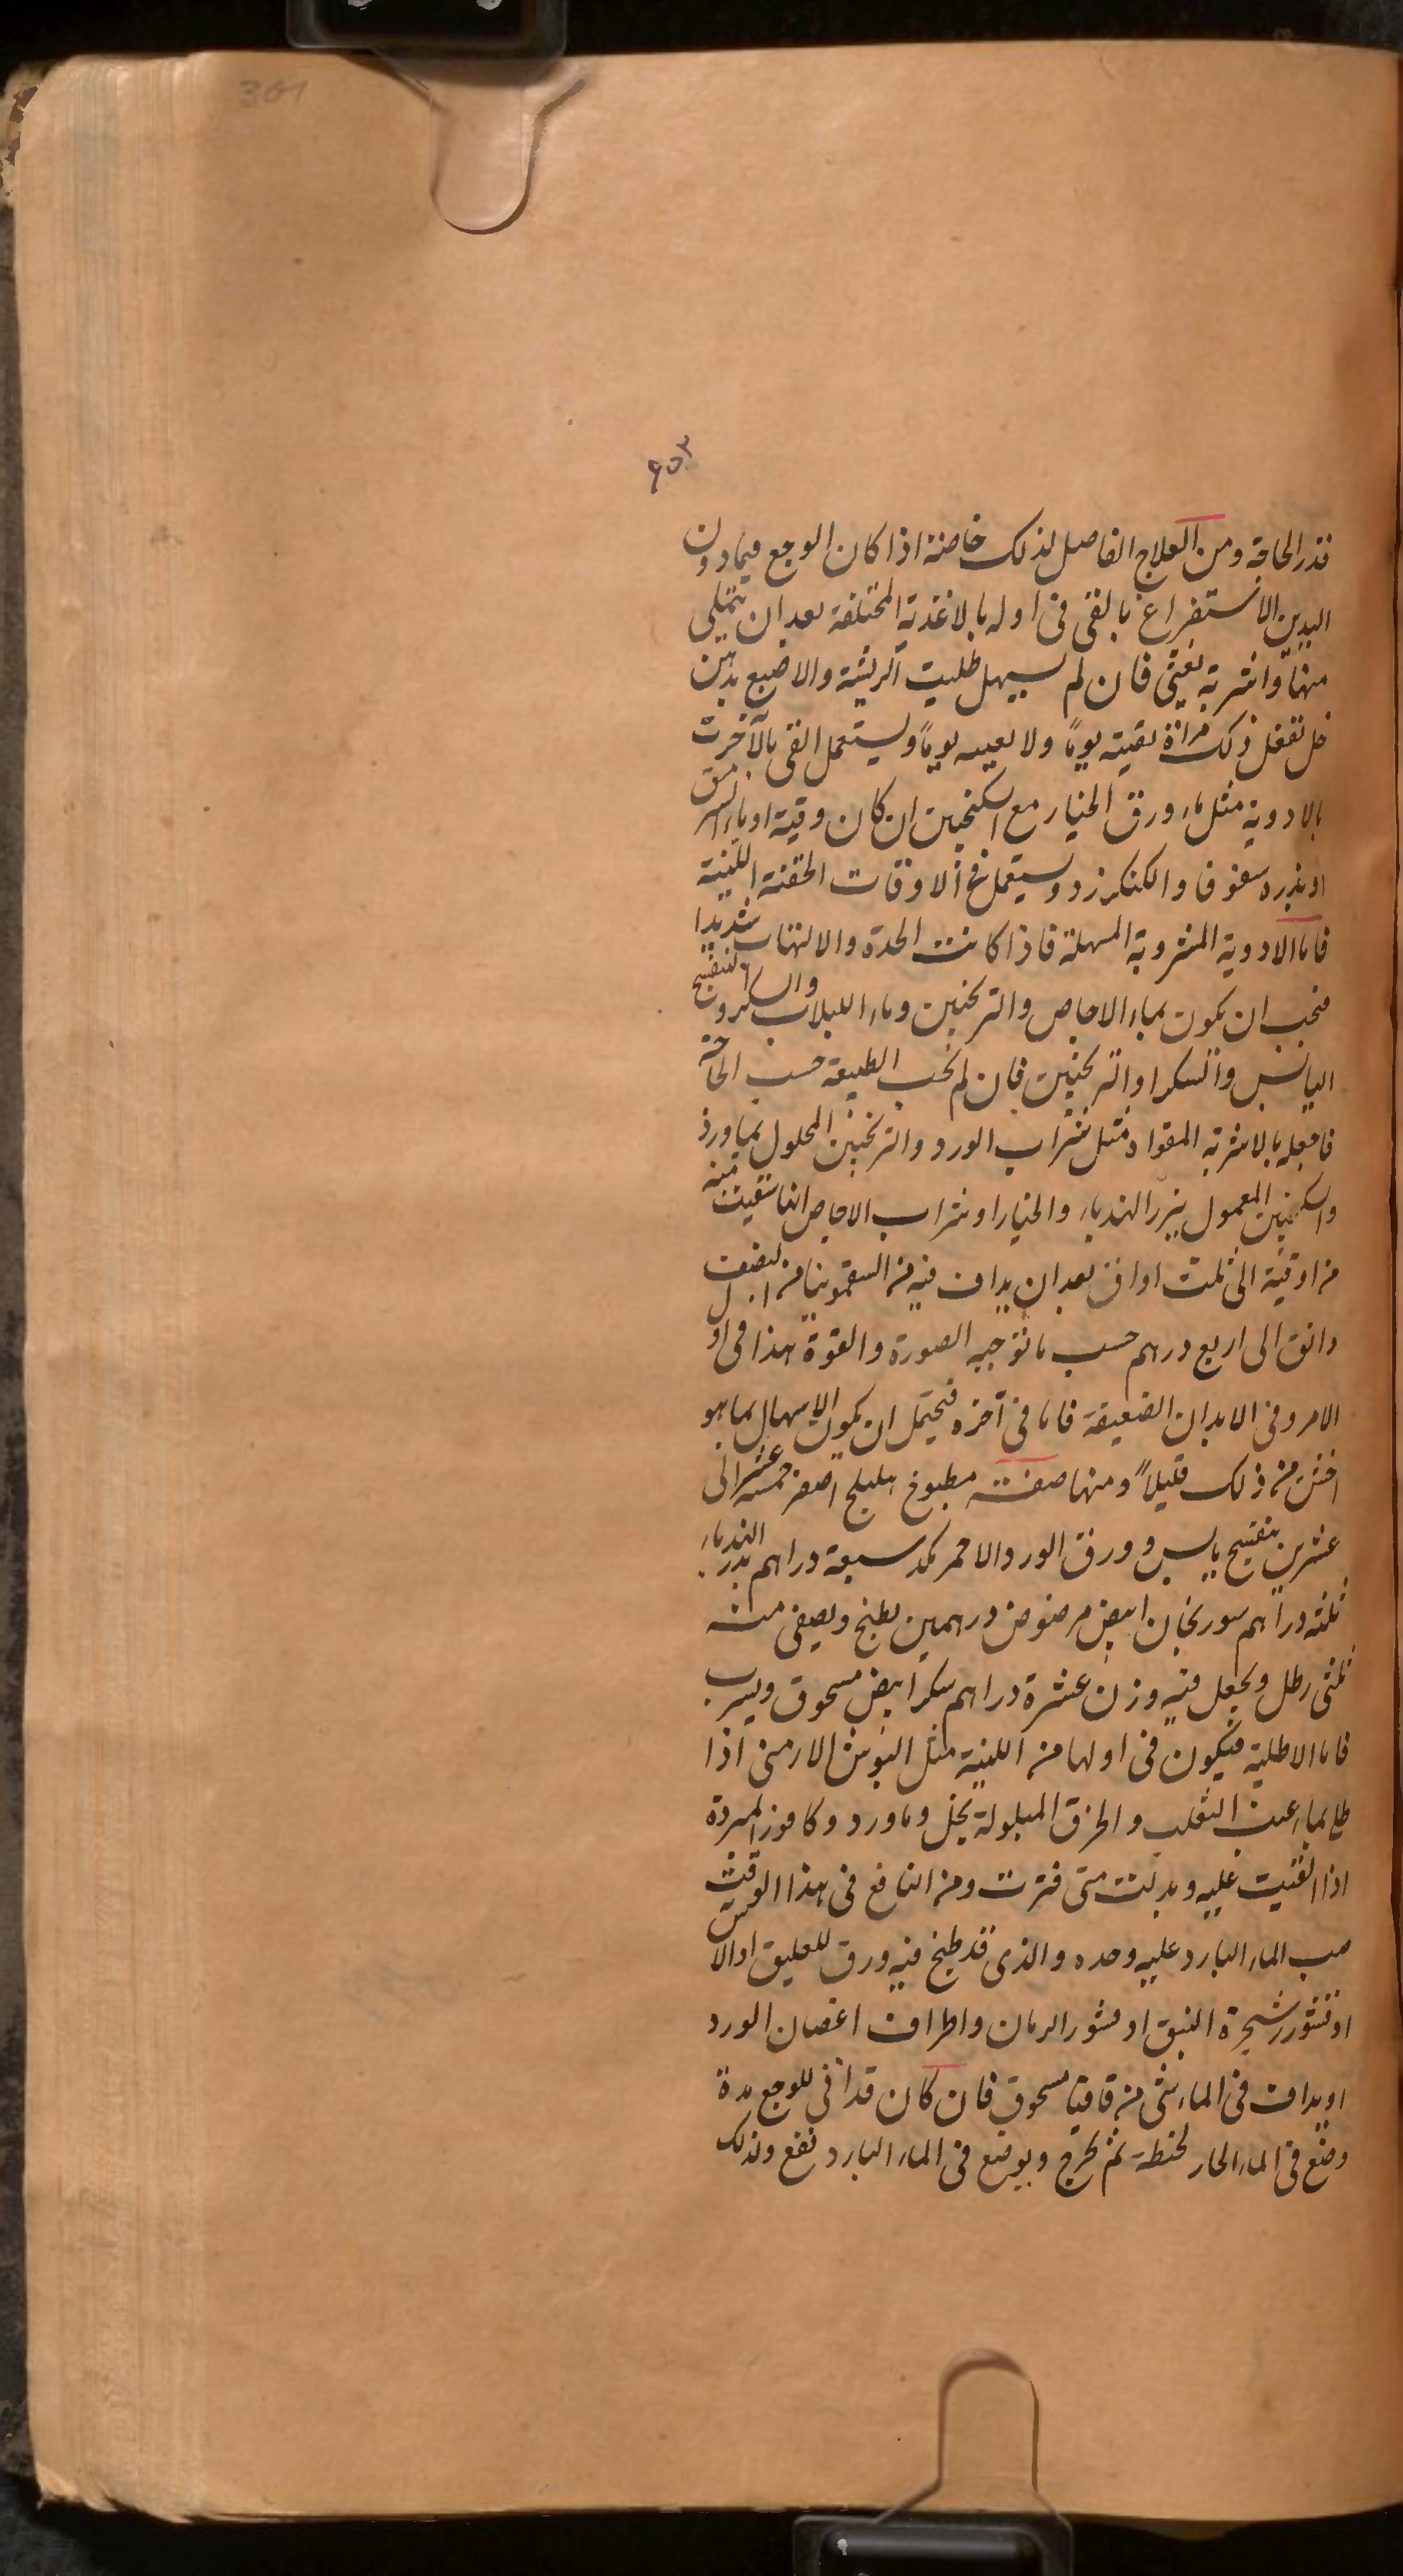 361
۶۰۳
قدر الحاجة ومن العلاج الفاصل لذلك خاصة اذا كان الوجع فيما دون
اليدين الاستفراغ بالقى فى اوله بالاغذية المختلفة بعد ان يتملى
منها واشربة تغثى فان لم يسهل طليت الريشة والاصبع بدهن
خل تفعل ذلك مراة يقيه يوماً ولا يعبيه يوماً ويستعمل القى بالآخرت
بالادوية مثل ماء ورق الخيار مع السكنجبين ان كان وقية او ماء السرمق
او بذره سفوفا والكنكرزد ويستعمل فى الاوقات الحقنة اللينة
فاما الادوية المشروبة المسهلة فاذا كانت الحدة والالتهاب شديدا
فيجب ان يكون بماء الاجاص والترنجبين وماء اللبلاب والسكر والبنفسج
اليابس والسكر او الترنجبين فان لم يجب الطبيعة حسب الحاجة
فامجله بالاشربة المقواة مثل شراب الورد والترنجبين المحلول بماورد
والسكنجبين المعمول ببزر الهندباء والخيار او شراب الاجاص انها سقيت منه
من اوقية الى ثلث اواق بعد ان يداف فيه من السقمونيا من نصف
دانق الى اربع درهم حسب ما توجبه الصورة والقوة هذا فى اول
الامر وفى الابدان الضعيفة فاما فى آخره فيحتمل ان يكون الاسهال بما هو
اخشن من ذلك قليلاً ومنها صفته مطبوخ هليلج اصفر خمسة عشر الى
عشرين بنفسج يابس وورق الورد الاحمر مكد سبعة دراهم بذر الهندباء
ثلثة دراهم سورنجان ابيض مرضوض درهمين يطبخ ويصفى منه
ثلثى رطل ويجعل فيه وزن عشرة دراهم سكر ابيض مسحوق ويشرب
فاما الاطلية فيكون فى اولها من اللينة مثل البوش الارمنى اذا
طلى بماء عنب الثعلب والخرق المبلولة بخل وماورد وكافور المبردة
اذا القيت عليه وبدلت متى فترت ومن النافع فى هذا الوقت
صب الماء البارد عليه وحده والذى قد طبخ فيه ورق للعليق او الآس
او قشور شجرة النبق او قشور الرمان واطراف اغصان الورد
او يداف فى الماء شى من قاقيا مسحوق فان كان قد اتى للوجع مدة
وضع فى الماء الحار لحظة ثم يخرج ويوضع فى الماء البارد نفع وذلك